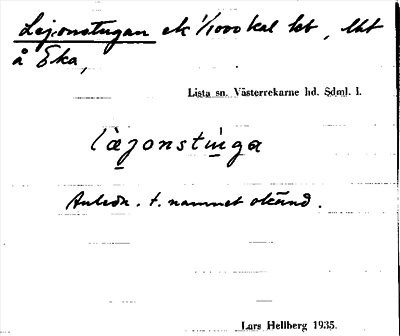 Lejonstugan ek 1/1000 kal kt, lht
å Eka,
Lista sn. Västerrekarne hd. Sdml. l.
lèjonstùga
Anledn. t. namnet okänd.
Lars Hellberg 1935.